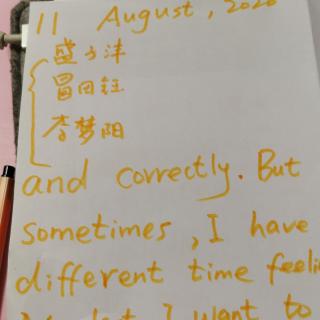 11 August, 2020
李梦阳
and correctly. But
sometimes, I have
different time
I want to